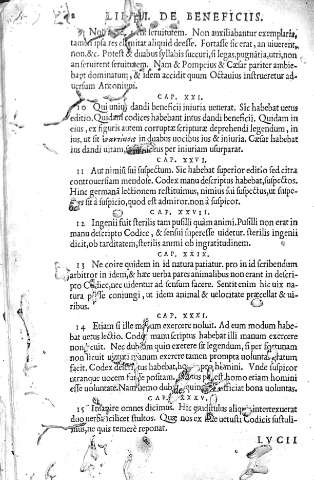 LIB. II. DE BENEFICIIS.
9 Non seruitutem. Non auxiliabantur exemplaria,
tamen ipsa res clamitat aliquid deesse. Fortasse sic erat, an uiuerent,
non, &c. Potest & duabus syllabis succuri, si legas, pugnātia, utri, non
an seruirent seruitutem. Nam & Pompeius & Cæsar pariter ambie-
bant dominatum, & idem accidit quum Octauius instrueretur ad-
uersum Antonium.
CAP. XXI.
10 Qui unius dandi beneficii iniuria ueterat. Sic habebat uetus
editio. Quidam codices habebant intus dandi beneficii. Quidam in
eius, ex figuris autem corruptæ scripturæ deprehendi legendum, in
ius, ut sit in duabus uocibus ius & iniuria. Cæsar habebat
ius dandi uitam, per iniuriam usurparat.
CAP. XXVI.
11 Aut nimiū sui suspectum. Sic habebat superior editio sed citra
controuersiam mendose. Codex manu descriptus habebat, suspectos.
Hinc germanā lectionem restituimus, nimius sui suspectus, ut suspe-
ctus sit à suspicio, quod est admiror, non à suspicor.
CAP. XXVII.
12 Ingenii fuit sterilis tam pusilli quàm animi. Pusilli non erat in
manu descripto Codice, & sensui superesse uidetur. sterilis ingenii
dicit, ob tarditatem, sterilis animi ob ingratitudinem.
CAP. XXIX.
13 Ne coire quidem in id natura patiatur. pro in id scribendum
arbittror in idem, & hæc uerba pares animalibus non erant in descri-
pto Codice, nec uidentur ad sensum facere. Sentit enim hic uix na-
tura posse coniungi, ut idem animal & uelocitate præcellat & ui-
ribus.
CAP. XXXI.
14 Etiam si ille manum exercere noluit. Ad eum modum habe-
bat uetus lectio. Codex manu scriptus habebat illi manum exercere
non licuit. Nec dubium quin exercere sit legendum, si per fortunam
non licuit manum exercere tamen prompta uoluntas
facit. Codex descriptus habebat, ho, pro homini. Vnde suspicor
utranque uocem fuisse positam, potius est, homo etiam homini
esse uoluntate. Nam uerno dubio, quin officiat bona uoluntas.
CAP. XXXV.
15 Imagire omnes dicimus. Hæc gui distulus aliquis intertexuerat
duo uerba scilicet stultos. Quæ nos ex fide uetusti Codicis sustuli-
mus, ne quis temere reponat.
LVCII